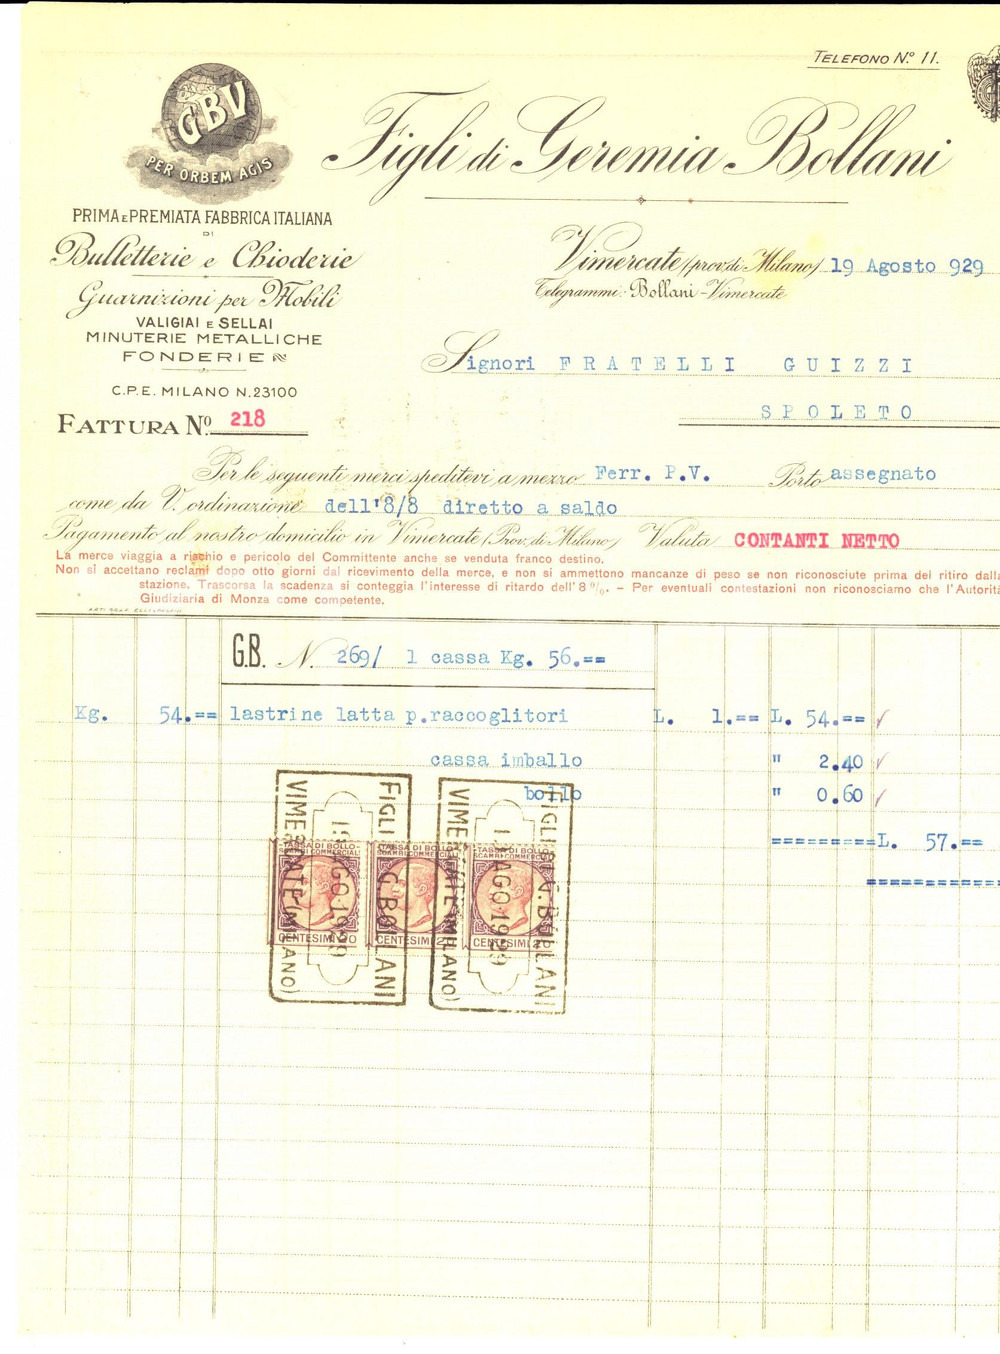 TELEFONO N.º 11.
GBV
PER ORBEM AGIS
Figli di Geremia Bollani
PRIMA E PREMIATA FABBRICA ITALIANA
DI
Bulletterie e Chioderie
Guarnizioni per Mobili
VALIGIAI E SELLAI
MINUTERIE METALLICHE
FONDERIE
C.P.E. MILANO N. 23100
Vimercate (prov. di Milano) 19 Agosto 929
Telegrammi: Bollani - Vimercate
Signori FRATELLI GUIZZI
SPOLETO
FATTURA Nº 218
Per le seguenti merci speditevi a mezzo Ferr. P.V. Porto assegnato
come da V. ordinazione dell'8/8 diretto a saldo
Pagamento al nostro domicilio in Vimercate (Prov. di Milano) Valuta CONTANTI NETTO
La merce viaggia a rischio e pericolo del Committente anche se venduta franco destino.
Non si accettano reclami dopo otto giorni dal ricevimento della merce, e non si ammettono mancanze di peso se non riconosciute prima del ritiro dalla
stazione. Trascorsa la scadenza si conteggia l'interesse di ritardo dell'8 %. – Per eventuali contestazioni non riconosciamo che l'Autorità
Giudiziaria di Monza come competente.
G.B. N. 269/ 1 cassa Kg. 56.==
Kg. 54.== lastrine latta p.raccoglitori L. 1.== L. 54.==
cassa imballo " 2.40
bollo " 0.60
==========L. 57.==
============
FIGLI G. BOLLANI
19 AGO 1929
VIMERCATE (MILANO)
FIGLI G. BOLLANI
19 AGO 1929
VIMERCATE (MILANO)
TASSA DI BOLLO
SCAMBI COMMERCIALI
CENTESIMI
TASSA DI BOLLO
SCAMBI COMMERCIALI
CENTESIMI
TASSA DI BOLLO
SCAMBI COMMERCIALI
CENTESIMI